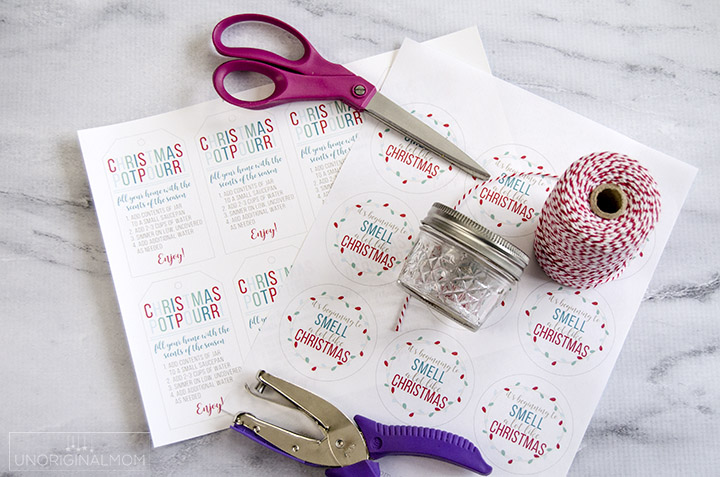 CHRISTMAS
POTPOURRI
fill your home with the
scents of the season
1. ADD CONTENTS OF JAR
TO A SMALL SAUCEPAN
2. ADD 2-3 CUPS OF WATER
3. SIMMER ON LOW, UNCOVERED
4. ADD ADDITIONAL WATER
AS NEEDED
Enjoy!
CHRISTMAS
POTPOURRI
fill your home with the
scents of the season
1. ADD CONTENTS OF JAR
TO A SMALL SAUCEPAN
2. ADD 2-3 CUPS OF WATER
3. SIMMER ON LOW, UNCOVERED
4. ADD ADDITIONAL WATER
AS NEEDED
Enjoy!
CHRISTMAS
POTPOURRI
fill your
scents of
1. ADD
TO A
2. ADD
3. SIMMER
CHRISTMAS
POTPOURRI
fill your home with the
scents of the season
1. ADD CONTENTS OF JAR
TO A SMALL SAUCEPAN
2. ADD 2-3 CUPS OF WATER
3. SIMMER ON LOW, UNCOVERED
4. ADD ADDITIONAL WATER
AS NEEDED
Enjoy!
CHRIS
POTPO
fill your
1. ADD
CHRISTMAS
it's beginning to
SMELL
a lot like
CHRISTMAS
it's beginning to
SMELL
a lot like
CHRISTMAS
it's beginning to
SMELL
a lot like
CHRISTMAS
it's beginning to
SMELL
a lot like
CHRISTMAS
it's beginning to
SMELL
a lot like
CHRISTMAS
it's beginning to
SMELL
a lot like
CHRISTMAS
UNORIGINALMOM